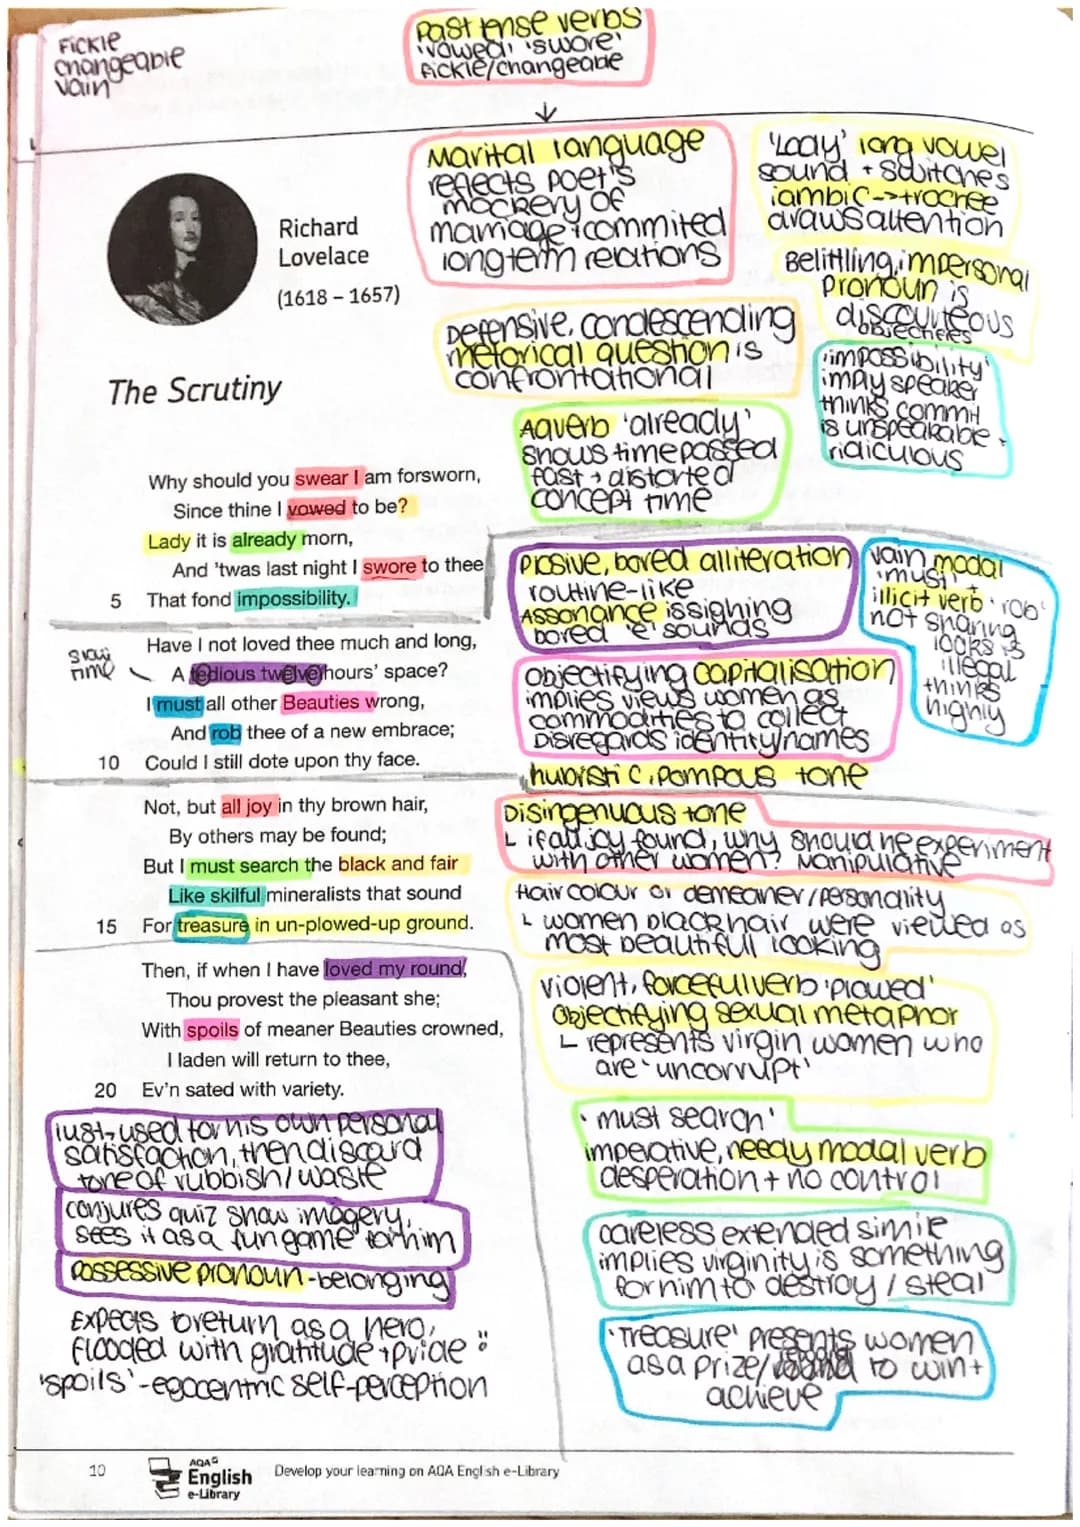 FICKLE
changeable
vain
Past tense verbs
'vowed' 'swore'
fickle/changeable
Marital language
reflects poet's
mockery of
marriage + commited
longterm relations
'Lady' long vowel
sound + switches
iambic -> trochee
draws attention
Belittling, impersonal
pronoun is
discourteous
objectifies
'impossibility'
may speaker
thinks commit
is unspeakable +
ridiculous
Richard
Lovelace
(1618 – 1657)
Defensive, condescending
rhetorical question is
confrontational
The Scrutiny
Adverb 'already'
shows time passed
fast + distorted
concept time
Why should you swear I am forsworn,
Since thine I vowed to be?
Lady it is already morn,
And 'twas last night I swore to thee
5 That fond impossibility.
Plosive, bored alliteration
routine-like
Assonance is sighing
bored 'e' sounds
vain modal
'must' +
illicit verb 'rob'
not sharing
looks is
illegal
thinks
highly
slow
time
Have I not loved thee much and long,
A tedious twelve hours' space?
I must all other Beauties wrong,
And rob thee of a new embrace;
10 Could I still dote upon thy face.
objectifying capitalisation
implies views women as
commodities to collect
Disregards identity/names
hubristic, pompous tone
Not, but all joy in thy brown hair,
By others may be found;
But I must search the black and fair
Like skilful mineralists that sound
15 For treasure in un-plowed-up ground.
Disingenuous tone
if all joy found, why should he experiment
with other women? Manipulative
Hair colour or demeaner/personality
women black hair were viewed as
most beautiful looking
Then, if when I have loved my round,
Thou provest the pleasant she;
With spoils of meaner Beauties crowned,
I laden will return to thee,
20 Ev'n sated with variety.
violent, forceful verb 'plowed'
Objectifying sexual metaphor
represents virgin women who
are 'uncorrupt'
lust, used for his own personal
satisfaction, then discard
tone of rubbish/waste
conjures quiz show imagery,
sees it as a 'fun game' for him
Possessive pronoun - belonging
Expects to return as a hero,
flooded with gratitude + pride
'spoils' - egocentric self-perception
'must search'
imperative, needy modal verb
desperation + no control
careless extended simile
implies virginity is something
for him to destroy / steal
'Treasure' presents women
as a prize/ to win +
achieve
10
AQA
English
e-Library
Develop your learning on AQA English e-Library